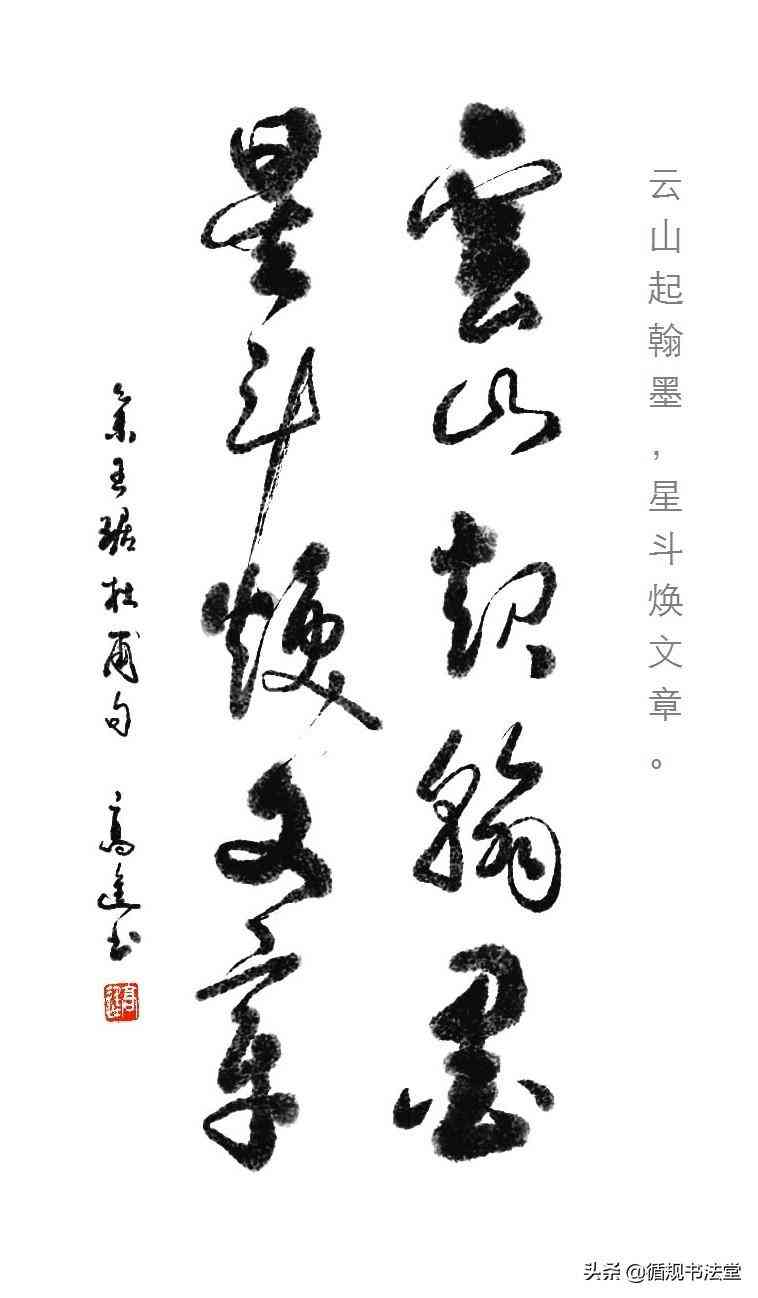 云山起翰墨，星斗焕文章。
雲山起翰墨
星斗煥文章
集王琚杜甫句 高進书
头条 @循规书法堂